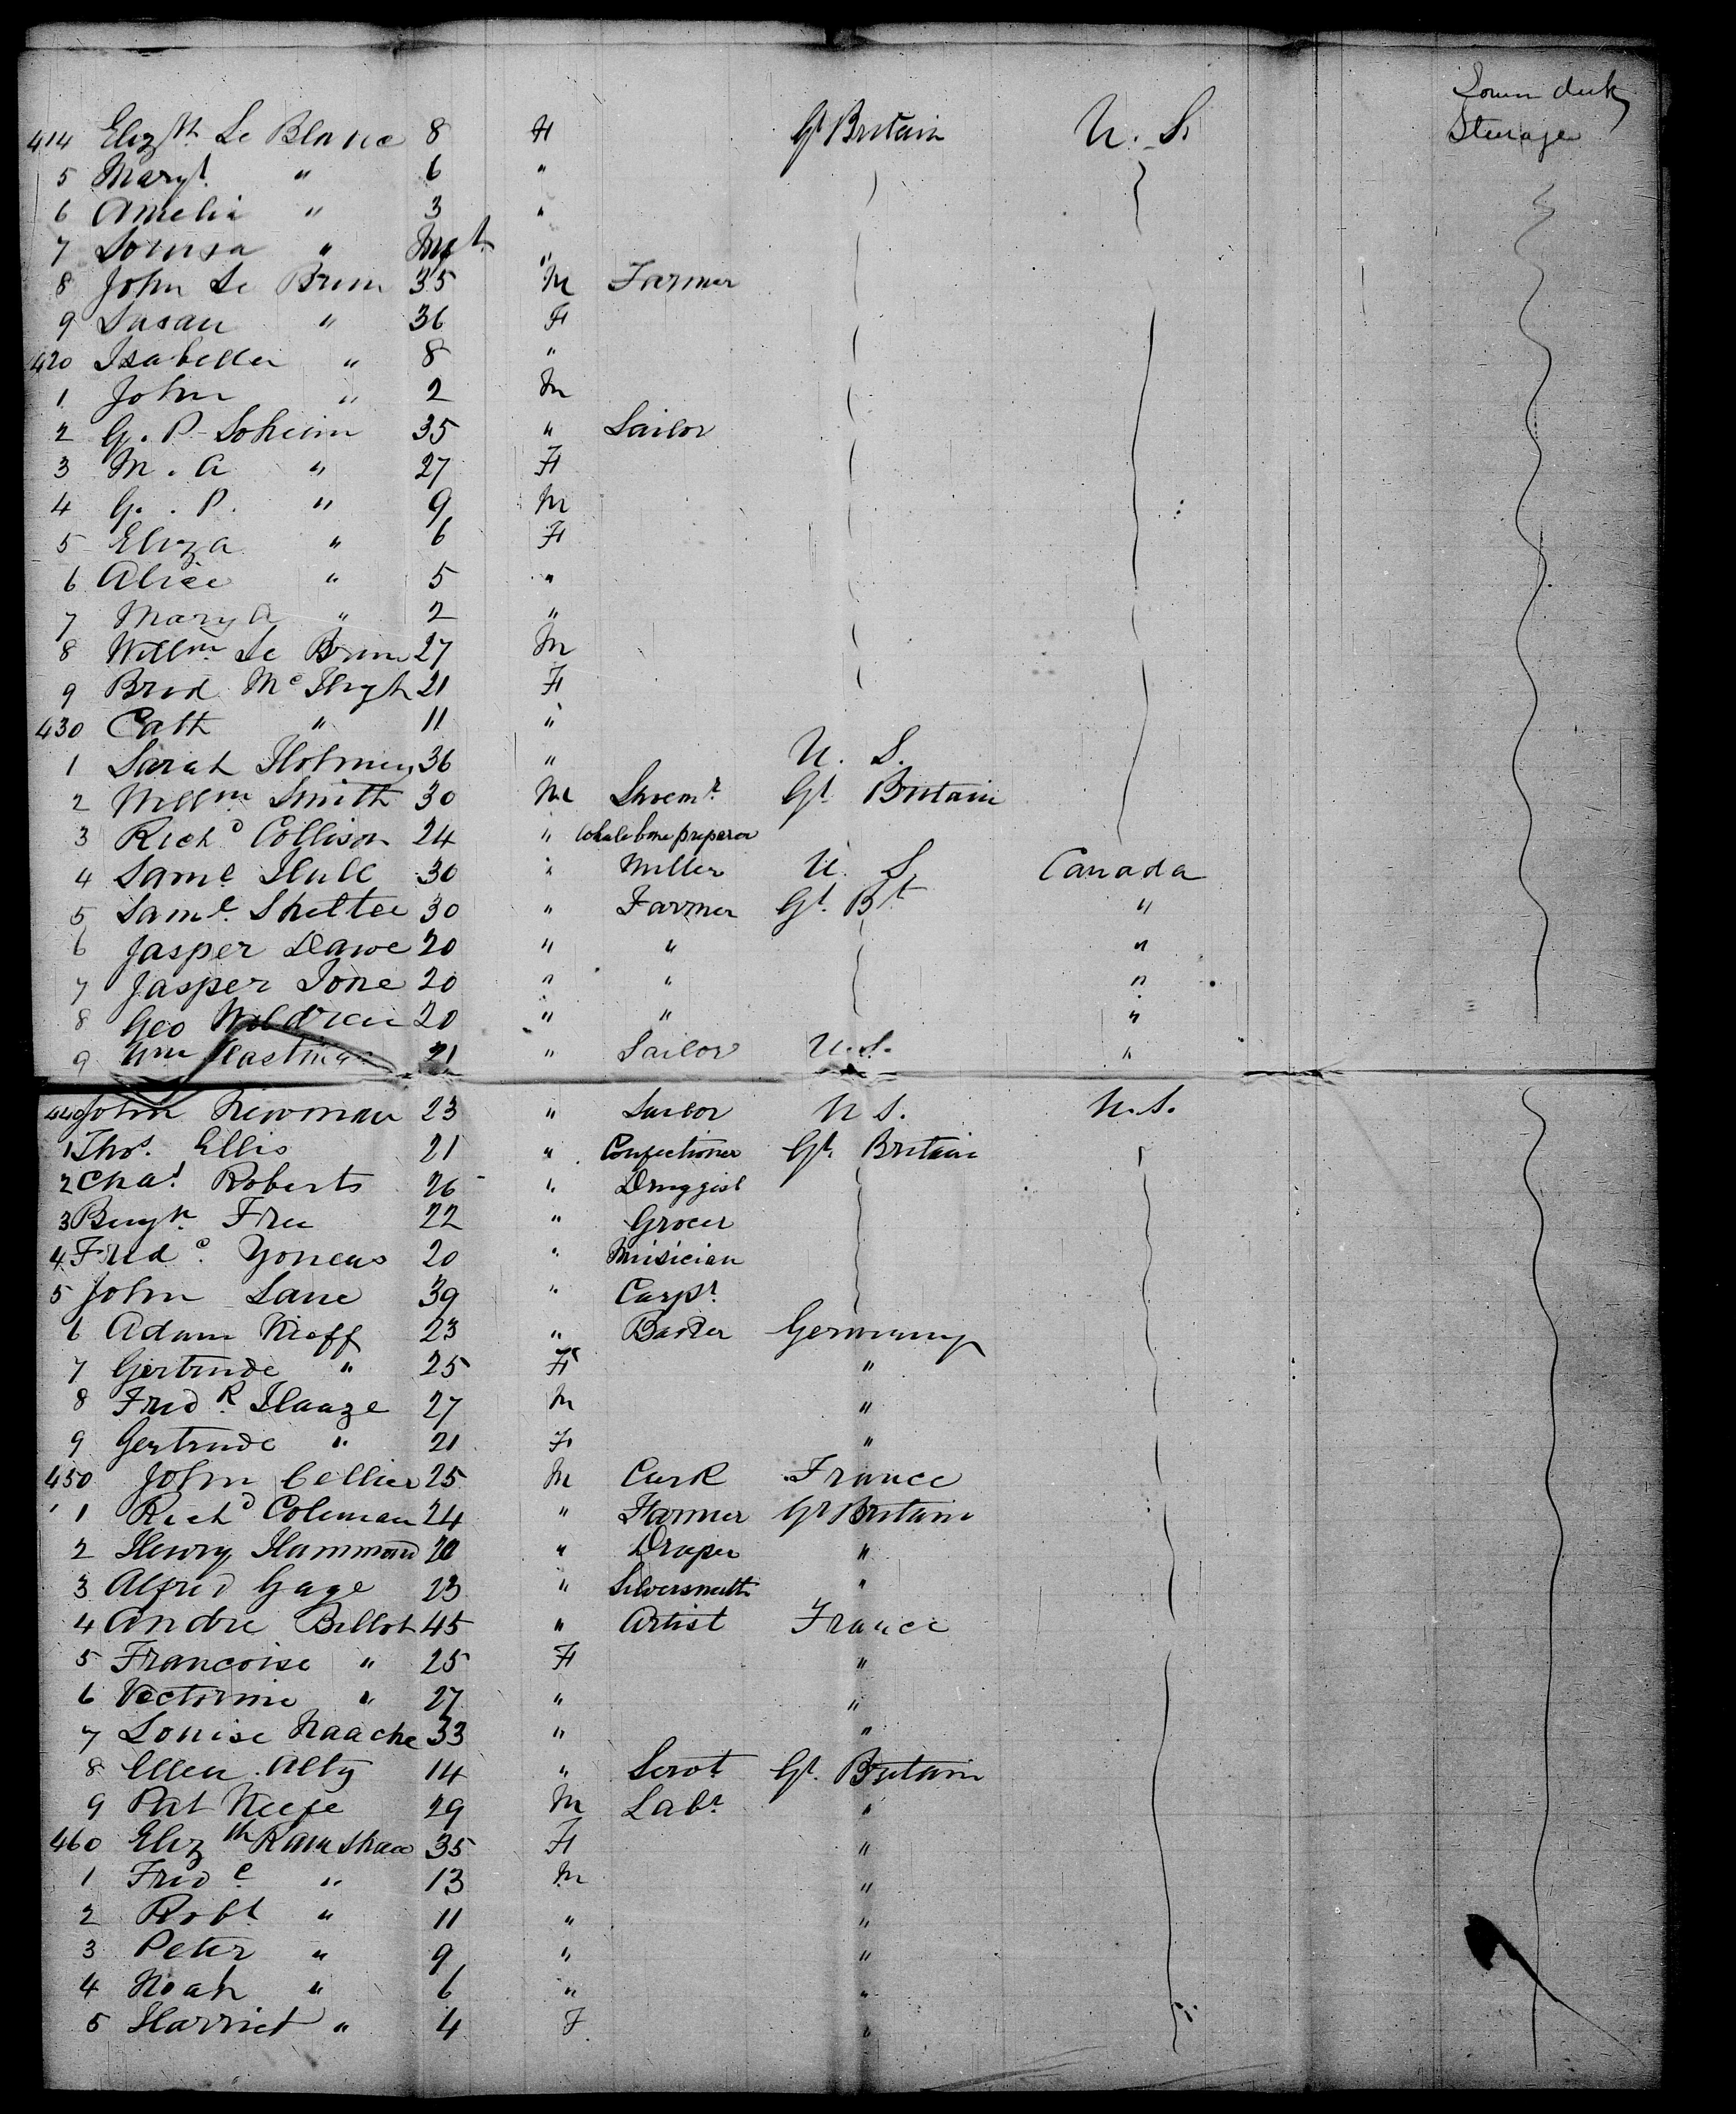 Lower deck
414 Elizth Le Blanc 8 F Gt Britain U. S. Steerage
5 Maryt " 6 "
6 Amelia " 3 "
7 Louisa " Inft "
8 John Le Brun 35 M Farmer
9 Susan " 36 F
420 Isabella " 8 "
1 John " 2 M
2 G. P. 35 " Sailor
3 M. A " 27 F
4 G. P. " 9 M
5 Eliza " 6 F
6 Alice " 5 "
7 Mary A " 2 "
8 Willm Le Brun 27 M
9 Brid 21 F
430 Cath " 11 "
1 Sarah 36 " U. S.
2 Willm Smith 30 M Shoemr Gt Britain
3 Richd Collison 24 " Whalebone preparer
4 Saml Hull 30 " Miller U. S. Canada
5 Saml. 30 " Farmer Gt. Bt "
6 Jasper Dawe 20 " " "
7 Jasper Tone 20 " " "
8 Geo Woldren 20 " " "
9 Wm Hastings 21 " Sailor U.S. "
440 John Newman 23 " Sailor U S. U.S.
1 Thos. Ellis 21 " Confectioner Gt. Britain
2 Chas. Roberts 26 " Druggist
3 Benjn. Free 22 " Grocer
4 Fredc. 20 " Musician
5 John Lane 39 " Carpr
6 Adam Kieff 23 " Baker Germany
7 Gertrude " 25 F "
8 Fredk. Haaze 27 M "
9 Gertrude " 21 F "
450 John Cellier 25 M Clerk France
1 Richd Coleman 24 " Farmer Gt Britain
2 Henry Hammond 20 " Draper "
3 Alfred Gage 23 " Silversmith "
4 Andre Billot 45 " Artist France
5 Francoise " 25 F "
6 Victorine " 27 " "
7 Louise Naache 33 " "
8 Ellen Alty 14 " Servt Gt. Britain
9 Pat Keefe 29 M Labr "
460 Elizth Ramshaw 35 F "
1 Fredc " 13 M "
2 Robt " 11 " "
3 Peter " 9 " "
4 Noah " 6 " "
5 Harriet " 4 F "